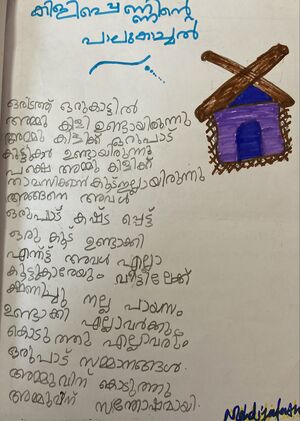 കിളിപ്പെണ്ണിന്റെ
പാലുകാച്ചൽ
ഒരിടത്ത് ഒരുകാട്ടിൽ
അമ്മു കിളി ഉണ്ടായിരുന്നു
അമ്മു കിളിക്ക് ഒറുപാട്
കുട്ടികൾ ഉണ്ടായിരുന്നു
പക്ഷെ അമ്മു കിളിക്ക്
താമസിക്കാൻ കൂട്ഇല്ലായിരുന്നു
അങ്ങനെ അവൾ
ഒരുപാട് കഷ്ട പ്പെട്ട്
ഒരു കൂട് ഉണ്ടാക്കി
എന്നിട്ട് അവൾ എല്ലാ
കൂട്ടുകാരേയും വീട്ടിലേക്ക്
ക്ഷണിച്ചു നല്ല പായസം
ഉണ്ടാക്കി എല്ലാവർക്കും
കൊടുത്തു എല്ലാവരും
ഒരുപാട് സമ്മാനങ്ങൾ
അമ്മുവിന് കൊടുത്തു
അമ്മുവിന് സന്തോഷമായി.